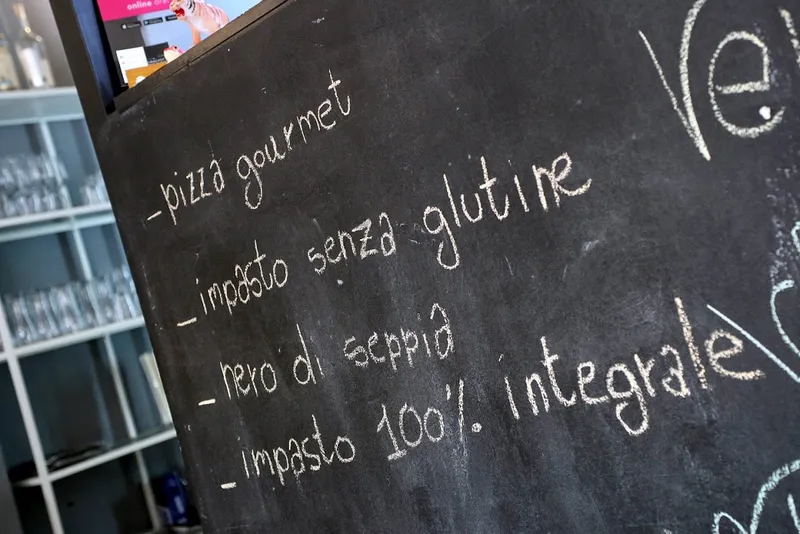 online
- pizza gourmet
- impasto senza glutine
- nero di seppia
- impasto 100% integrale